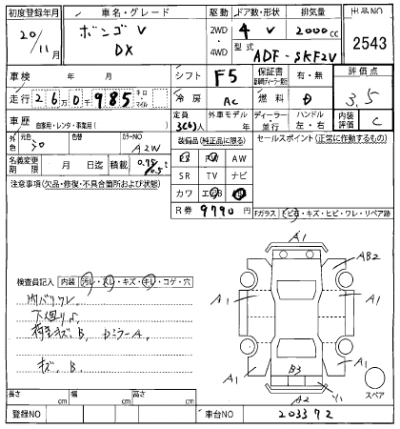 初度登録年月 車名・グレード 駆動 ドア数・形状 排気量 出品NO
20/11月 ボンゴ V DX 2WD 4WD 4 V 2000cc 2543
型式 ADF-SKF2V
車検 年 月 シフト F5 保証書 有・無 評価点 3.5
走行 26万0千985 キロ・マイル 冷房 AC 燃料 D
車歴 自家用・レンタ・事業用( ) 定員 3(6)人 外車モデル 年 ディーラー・並行 ハンドル 左・右 内装評価 C
外色 元色 シロ 色替 カラーNO A2W 装備品(純正品に限る) セールスポイント(正常に作動するもの)
名義変更期限 月 日迄 積載 0.75/0.5t PS PW AW
SR TV ナビ
注意事項(欠品・修復・不具合箇所および状態)
カワ エアB
R券 9790円
Fガラス ヒビ・キズ・ヒビ・ワレ・リペア跡
A1
AB2
A1
A1
A1
A1
B3
A2 Y1
スペア
検査員記入 内装 汚レ・スレ・キズ・キレ・コゲ・穴
内バリワレ
下廻りサ
荷室キズ、B、DミラーA、
キズ、B、
長さ cm 幅 cm 高さ cm
登録NO 車台NO 203372